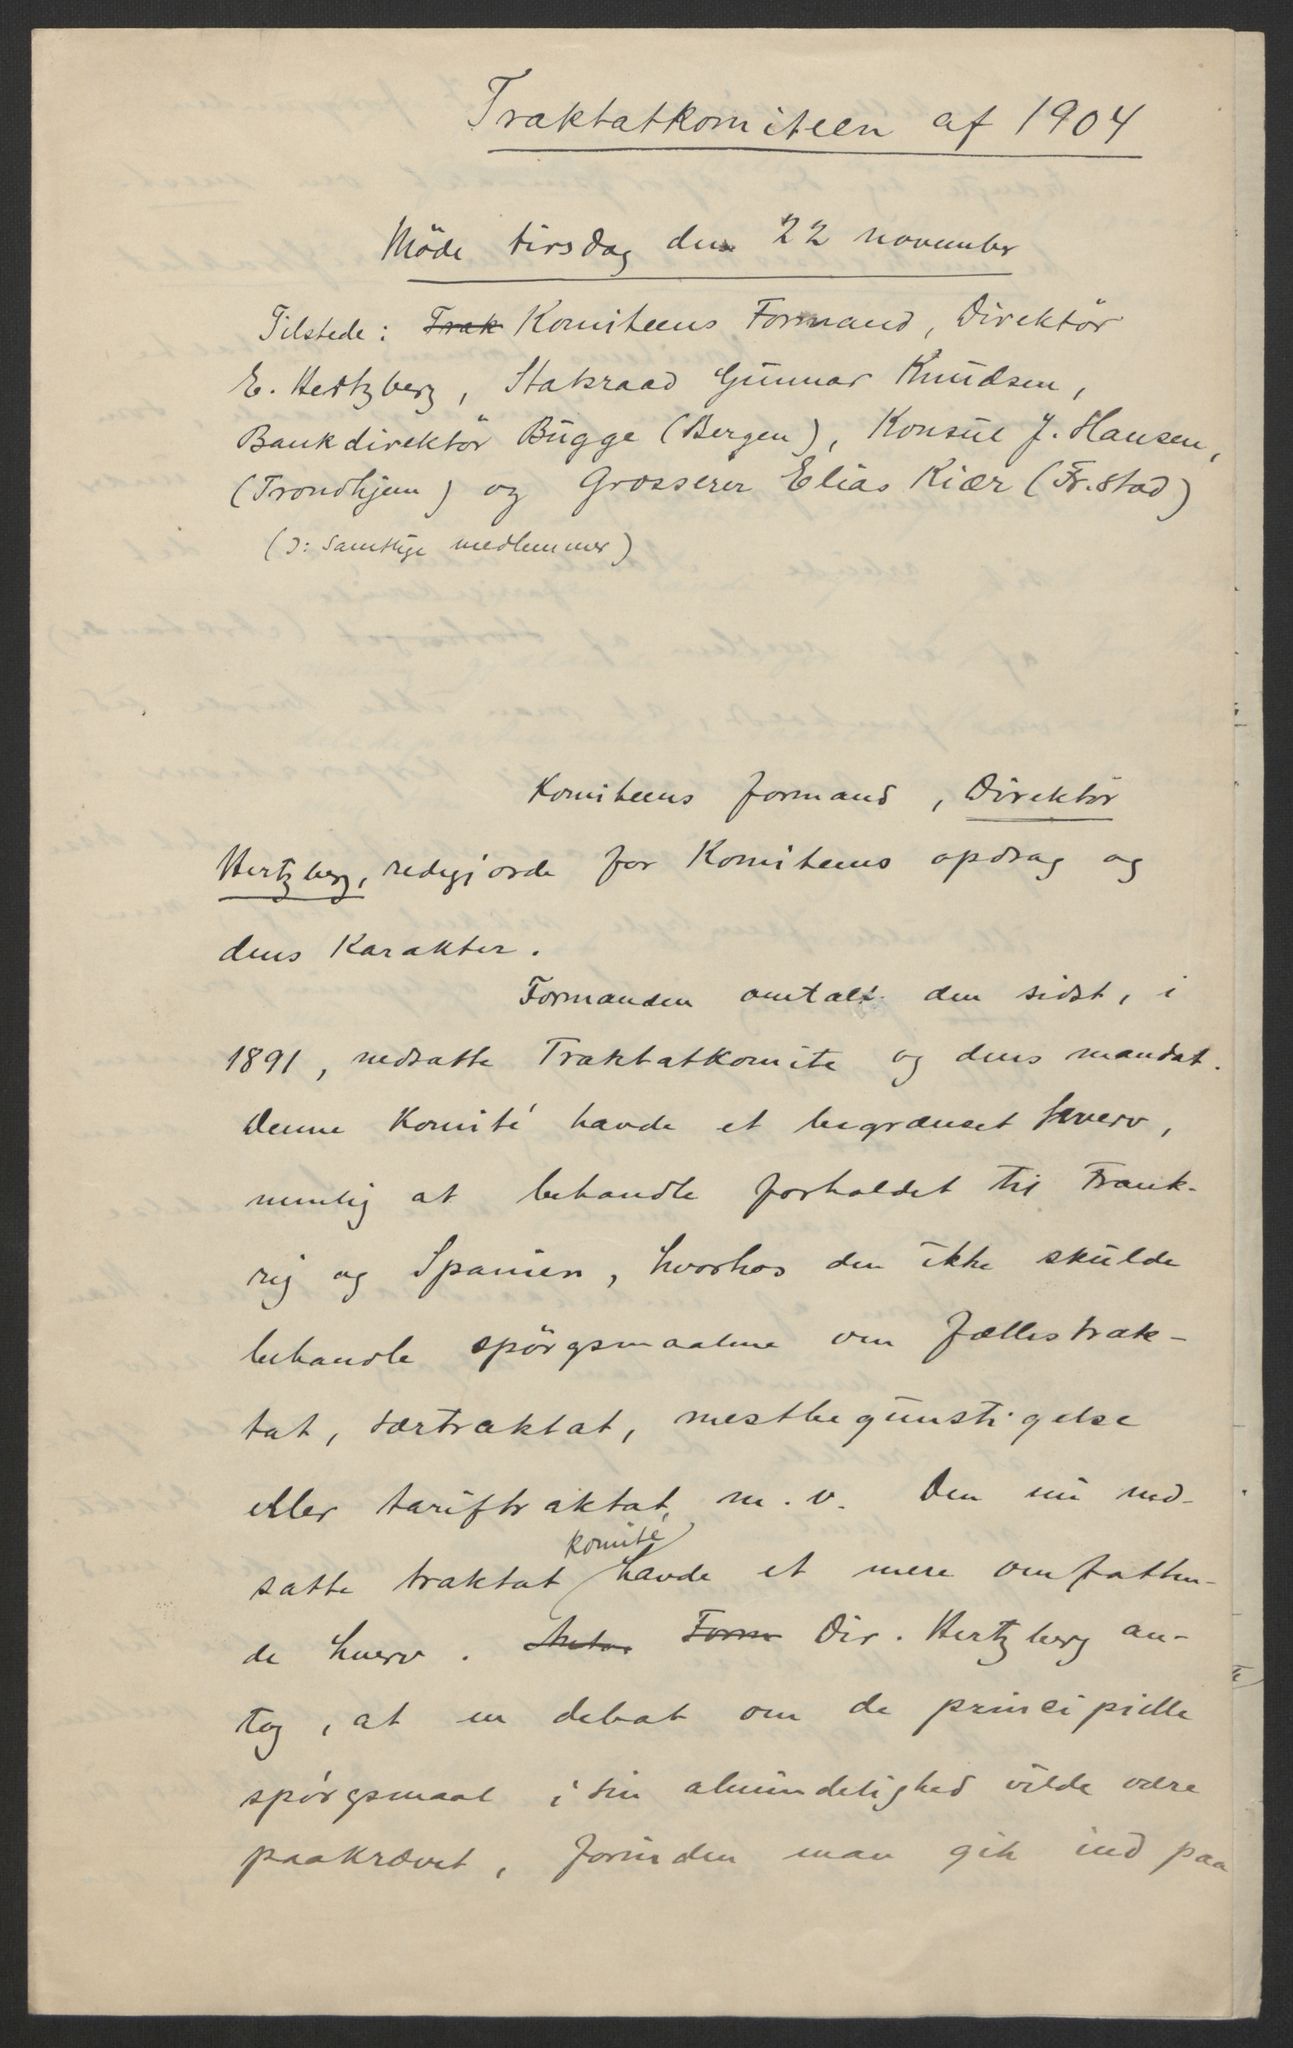 Traktatkomiteen af 1904
Möde tirsdag den 22 november
Tilstede: Trak Komiteens Formand, Direktör
E. Hertzberg, Statsraad Gunnar Knudsen,
Bankdirektör Bugge (Bergen), Konsul J. Hansen,
(Trondhjem) og Grosserer Elias Kiær (Fr.stad)
(ɔ: samtlige medlemmer)
Komiteens formand, Direktör
Hertzberg, redegjorde for Komiteens opdrag og
dens Karakter.
Formanden omtalt den sidst, i
1891, nedsatte Traktatkomite og dens mandat.
Denne Komité havde et begrænset hverv,
nemlig at behandle forholdet til Frank-
rig og Spanien, hvorhos den ikke skulde
behandle spörgsmaalene om fællestrak-
tat, særtraktat, mestbegunstigelse
eller tariftraktat m. v. Den nu ned-
satte traktat komité havde et mere omfatten-
de hverv. Form Dir. Hertzberg an-
tog, at en debat om de principielle
spörgsmaal i sin almindelighed vilde være
paakrævet, forinden man gik ind paa